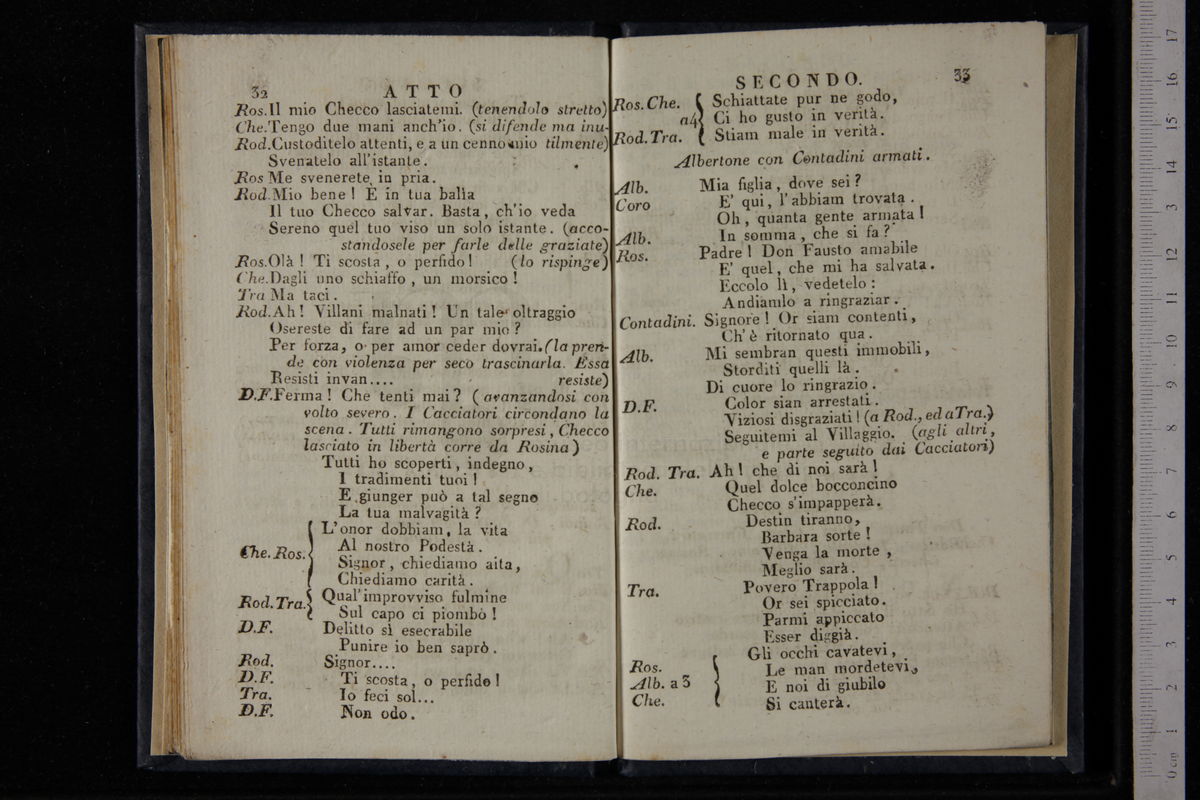 32
ATTO
Ros. Il mio Checco lasciatemi. (tenendolo stretto)
Che. Tengo due mani anch'io. (si difende ma inu-
Rod. Custoditelo attenti, e a un cenno mio tilmente)
Svenatelo all'istante.
Ros Me svenerete in pria.
Rod. Mio bene! E in tua balìa
Il tuo Checco salvar. Basta, ch'io veda
Sereno quel tuo viso un solo istante. (acco-
standosele per farle delle graziate)
Ros. Olà! Ti scosta, o perfido! (lo rispinge)
Che. Dagli uno schiaffo, un morsico!
Tra Ma taci.
Rod. Ah! Villani malnati! Un tale oltraggio
Osereste di fare ad un par mio?
Per forza, o per amor ceder dovrai. (la pren-
de con violenza per seco trascinarla. Essa
Resisti invan.... resiste)
D.F. Ferma! Che tenti mai? (avanzandosi con
volto severo. I Cacciatori circondano la
scena. Tutti rimangono sorpresi, Checco
lasciato in libertà corre da Rosina)
Tutti ho scoperti, indegno,
I tradimenti tuoi!
E giunger può a tal segno
La tua malvagità?
L'onor dobbiam, la vita
Al nostro Podestà.
Che. Ros. Signor, chiediamo aita,
Chiediamo carità.
Rod. Tra. Qual'improvviso fulmine
Sul capo ci piombò!
D.F. Delitto sì esecrabile
Punire io ben saprò.
Rod. Signor....
D.F. Ti scosta, o perfido!
Tra. Io feci sol...
D.F. Non odo.
SECONDO.
33
Ros. Che. Schiattate pur ne godo,
a4 Ci ho gusto in verità.
Rod. Tra. Stiam male in verità.
Albertone con Contadini armati.
Alb. Mia figlia, dove sei?
Coro E' qui, l'abbiam trovata.
Oh, quanta gente armata!
Alb. In somma, che si fa?
Ros. Padre! Don Fausto amabile
E' quel, che mi ha salvata.
Eccolo lì, vedetelo:
Andiamlo a ringraziar.
Contadini. Signore! Or siam contenti,
Ch'è ritornato qua.
Alb. Mi sembran questi immobili,
Storditi quelli là.
Di cuore lo ringrazio.
D.F. Color sian arrestati.
Viziosi disgraziati! (a Rod., ed a Tra.)
Seguitemi al Villaggio. (agli altri,
e parte seguito dai Cacciatori)
Rod. Tra. Ah! che di noi sarà!
Che. Quel dolce bocconcino
Checco s'impapperà.
Rod. Destin tiranno,
Barbara sorte!
Venga la morte,
Meglio sarà.
Tra. Povero Trappola!
Or sei spicciato.
Parmi appiccato
Esser diggià.
Gli occhi cavatevi,
Ros. Le man mordetevi,
Alb. a 3 E noi di giubilo
Che. Si canterà.